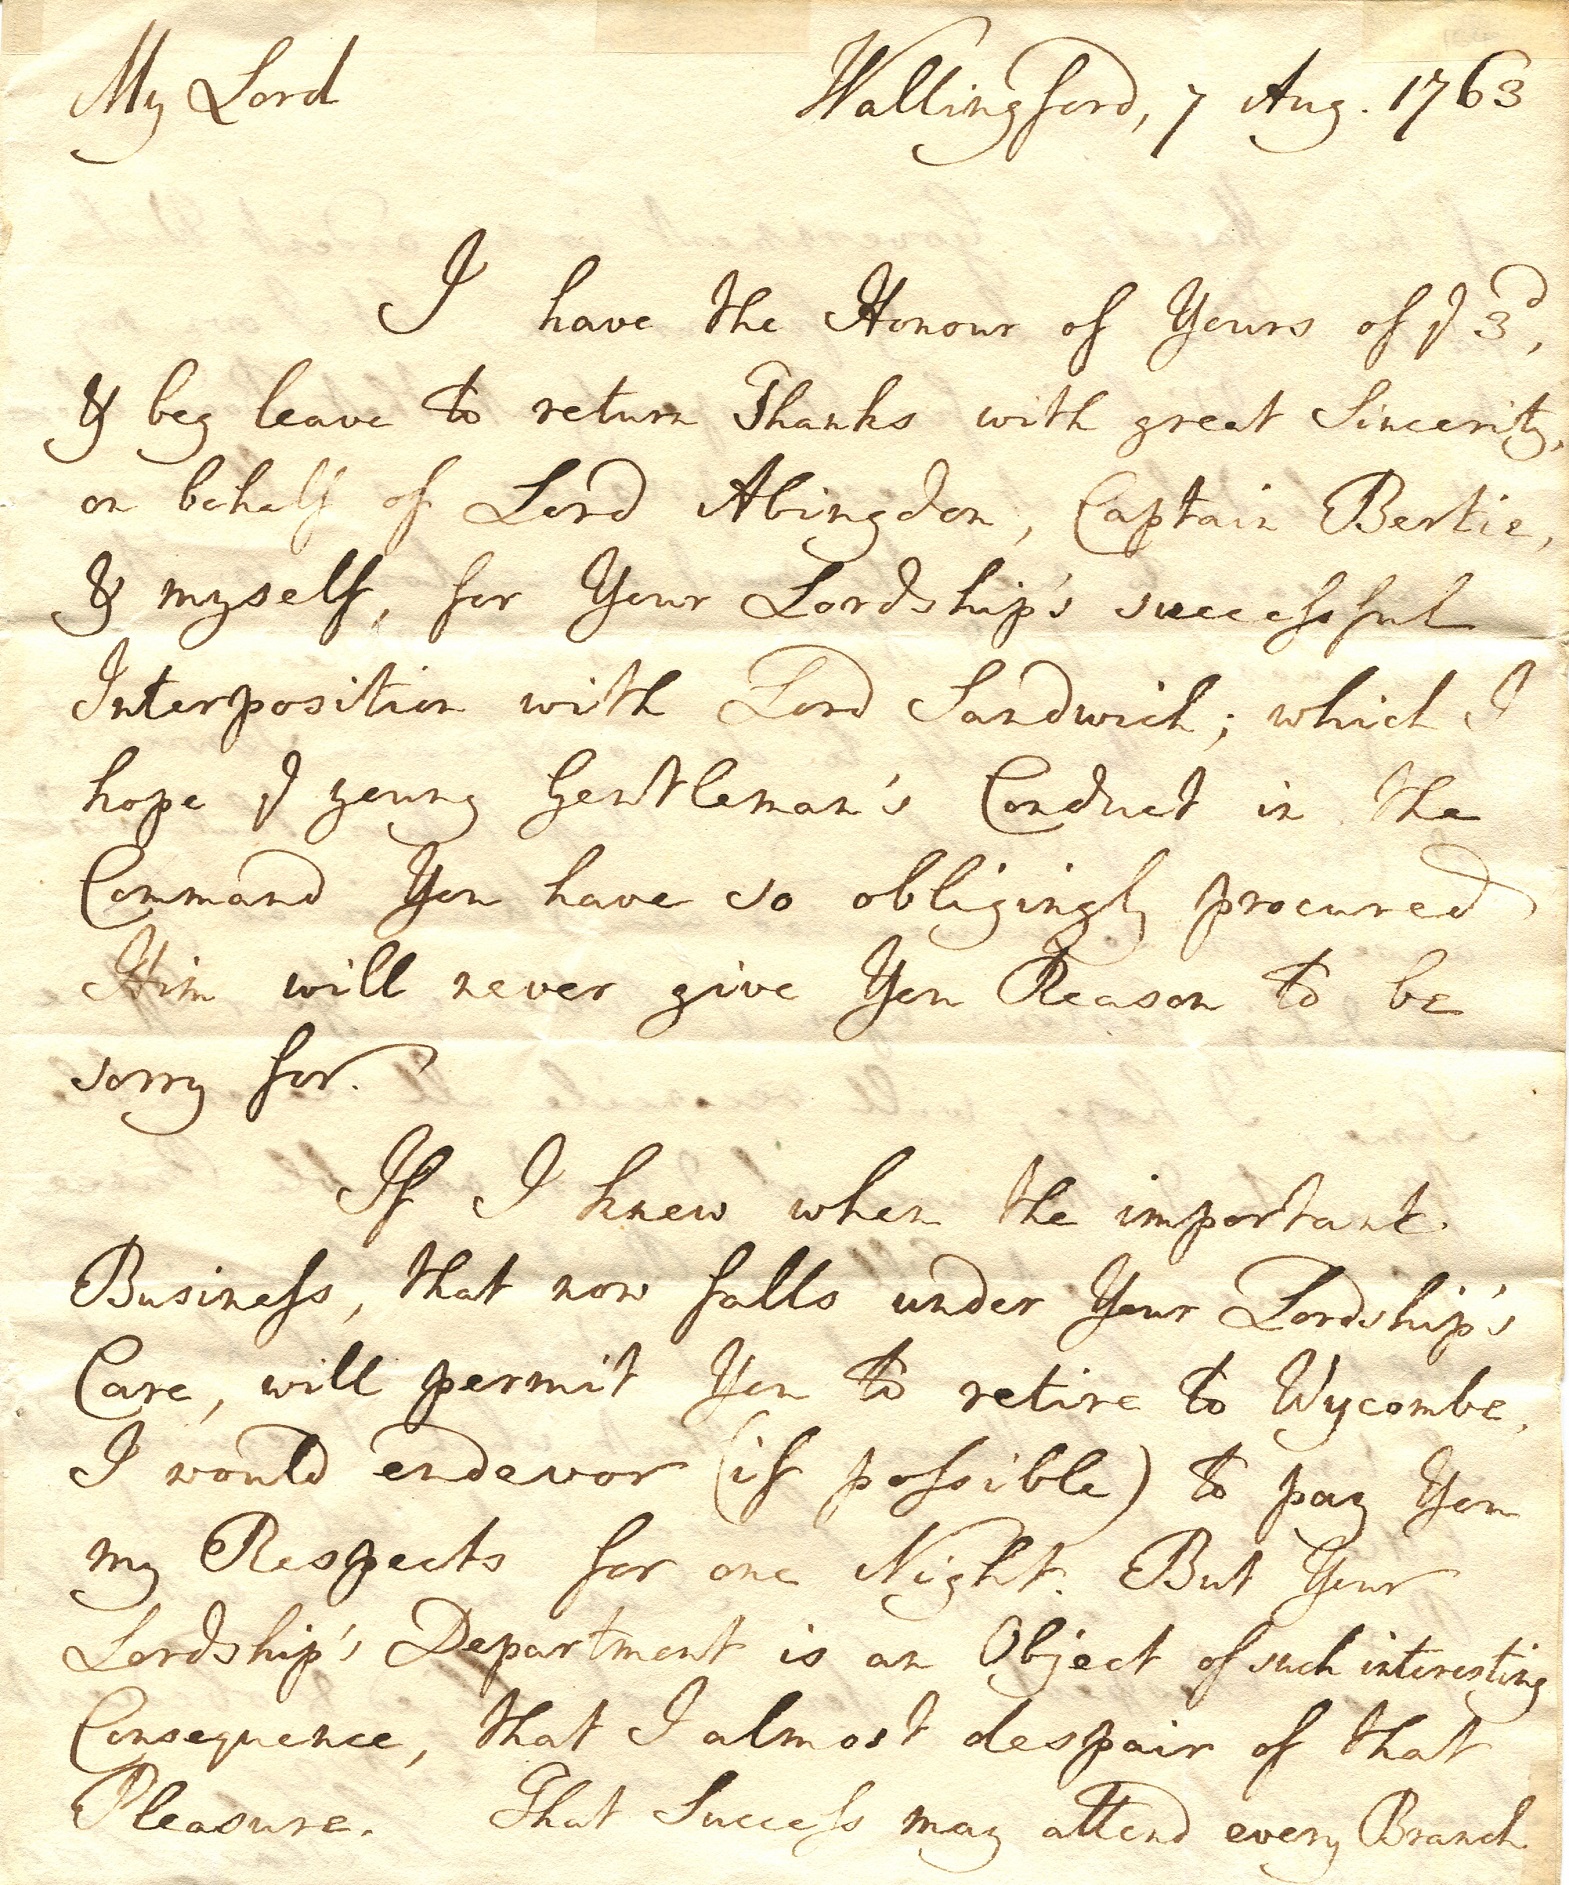 My Lord Wallingford, 7 Aug. 1763
I have the Honour of Yours of ye 3d,
& beg leave to return Thanks with great Sincerity,
on behalf of Lord Abingdon, Captain Bertie,
& myself, for Your Lordship's successful
Interposition with Lord Sandwich; which I
hope ye young Gentleman's Conduct in the
Command You have so obligingly procured
Him will never give You Reason to be
sorry for.
If I knew when the important
Business, that now falls under Your Lordship's
Care, will permit You to retire to Wycombe,
I would endevor (if possible) to pay You
my Respects for one Night. But Your
Lordship's Department is an Object of such interesting
Consequence, that I almost despair of that
Pleasure. That Success may attend every Branch